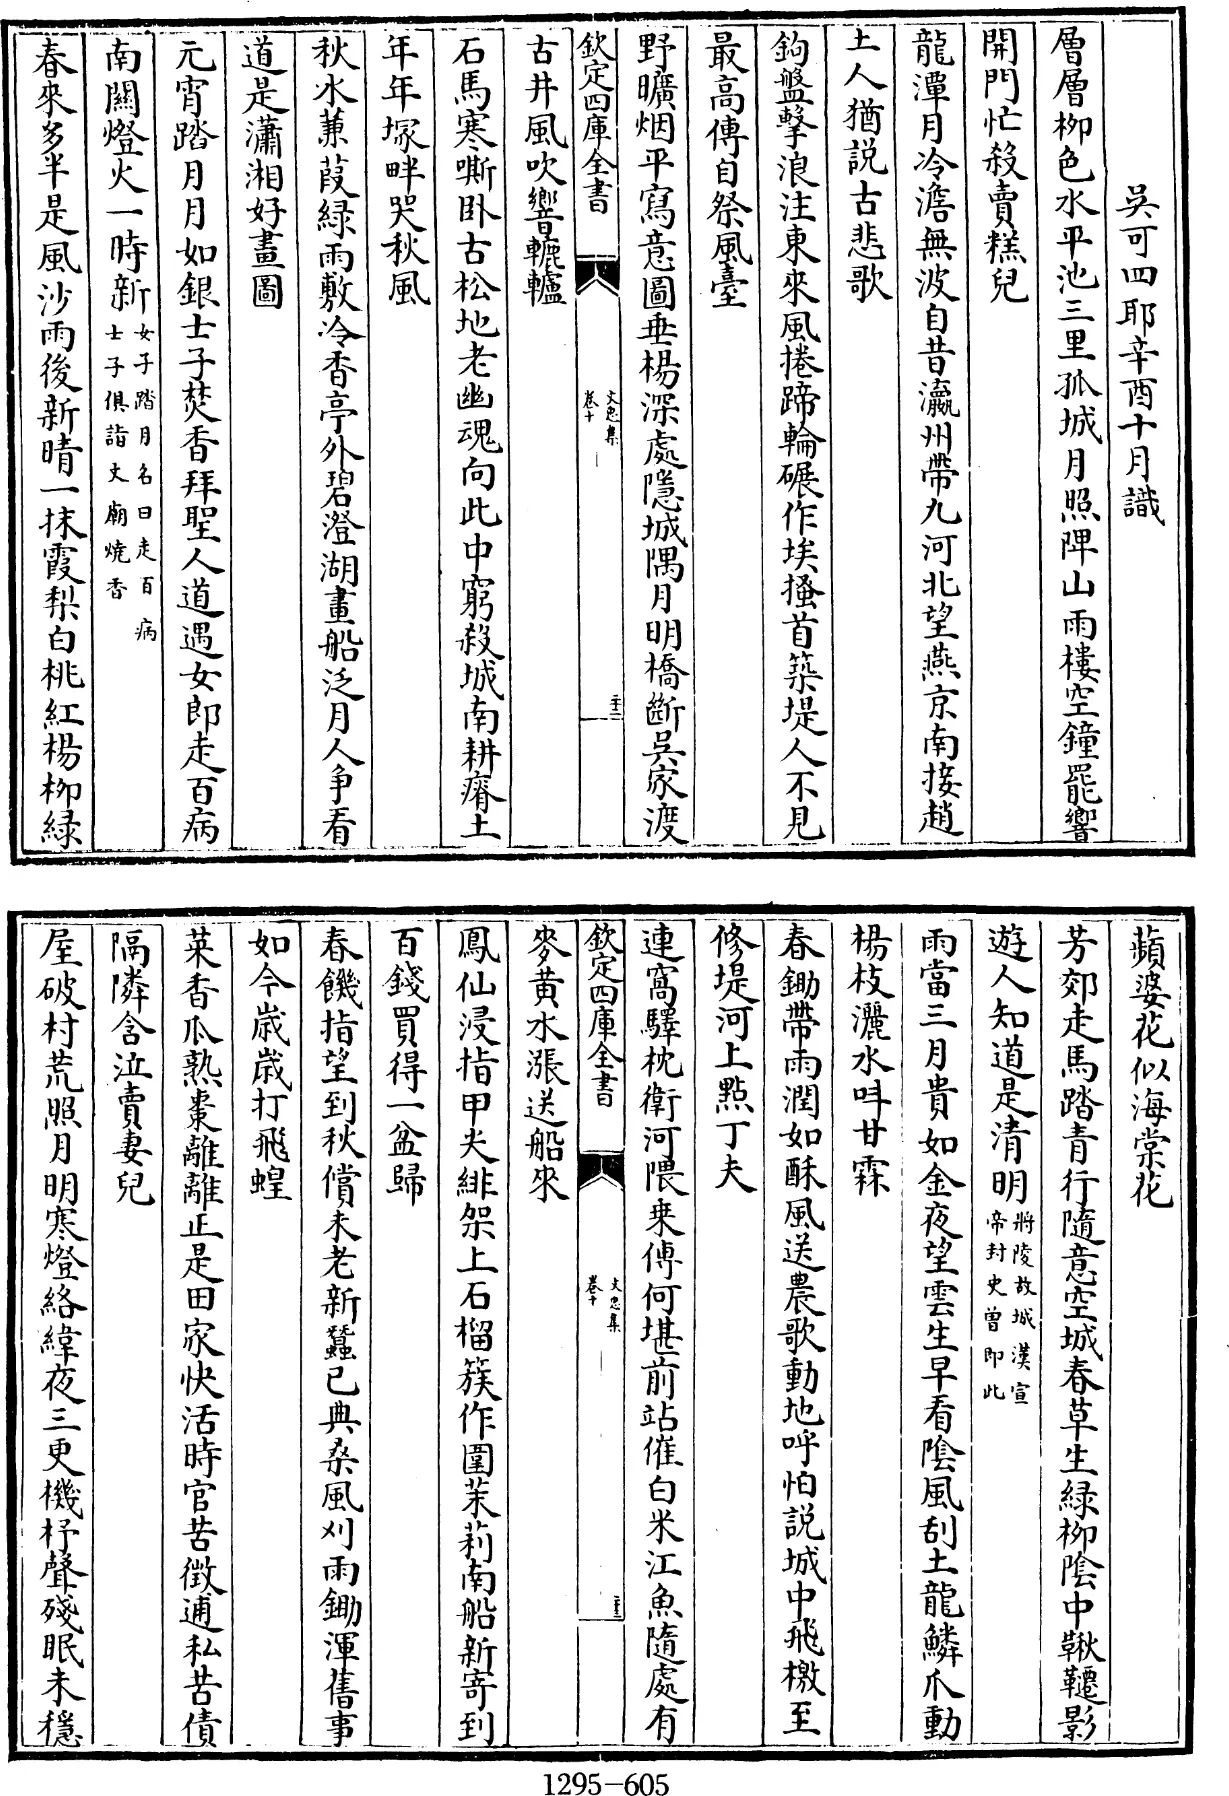 吳可四耶辛酉十月識
層層栁色水平池三里孤城月照陴山雨樓空鐘罷響
開門忙殺賣糕兒
龍潭月冷澹無波自昔瀛州帶九河北望燕京南接趙
土人猶説古悲歌
鉤盤擊浪注東來風捲蹄輪碾作埃搔首築堤人不見
最高傳自祭風臺
野曠烟平寫意圖垂楊深處隱城隅月明橋斷吳家渡
欽定四庫全書
文忠集
卷十
古井風吹響轆轤
石馬寒嘶卧古松地老幽魂向此中窮殺城南耕瘠土
年年塚畔哭秋風
秋水蒹葭緑雨敷冷香亭外碧澄湖畫船泛月人争看
道是瀟湘好畫圖
元宵踏月月如銀士子焚香拜聖人道遇女郎走百病
南關燈火一時新女子踏月名曰走百病士子俱詣文廟燒香
春來多半是風沙雨後新晴一抹霞梨白桃紅楊栁緑
蘋婆花似海棠花
芳郊走馬踏青行隨意空城春草生緑栁陰中鞦韆影
遊人知道是清明將陵故城漢宣帝封史曽即此
雨當三月貴如金夜望雲生早看陰風刮土龍鱗爪動
楊枝灑水呌甘霖
春鋤帶雨潤如酥風送農歌動地呼怕説城中飛檄至
修堤河上㸃丁夫
連窩驛枕衛河隈乗傳何堪前站催白米江魚隨處有
欽定四庫全書
文忠集
卷十
麥黄水漲送船來
鳳仙浸指甲尖緋架上石榴簇作圍茉莉南船新寄到
百錢買得一盆歸
春饑指望到秋償未老新蠶已典桑風刈雨鋤渾舊事
如今歳歳打飛蝗
菜香瓜熟棗離離正是田家快活時官苦徴逋私苦債
隔隣含泣賣妻兒
屋破村荒照月明寒燈絡緯夜三更機杼聲殘眠未穏
1295-605